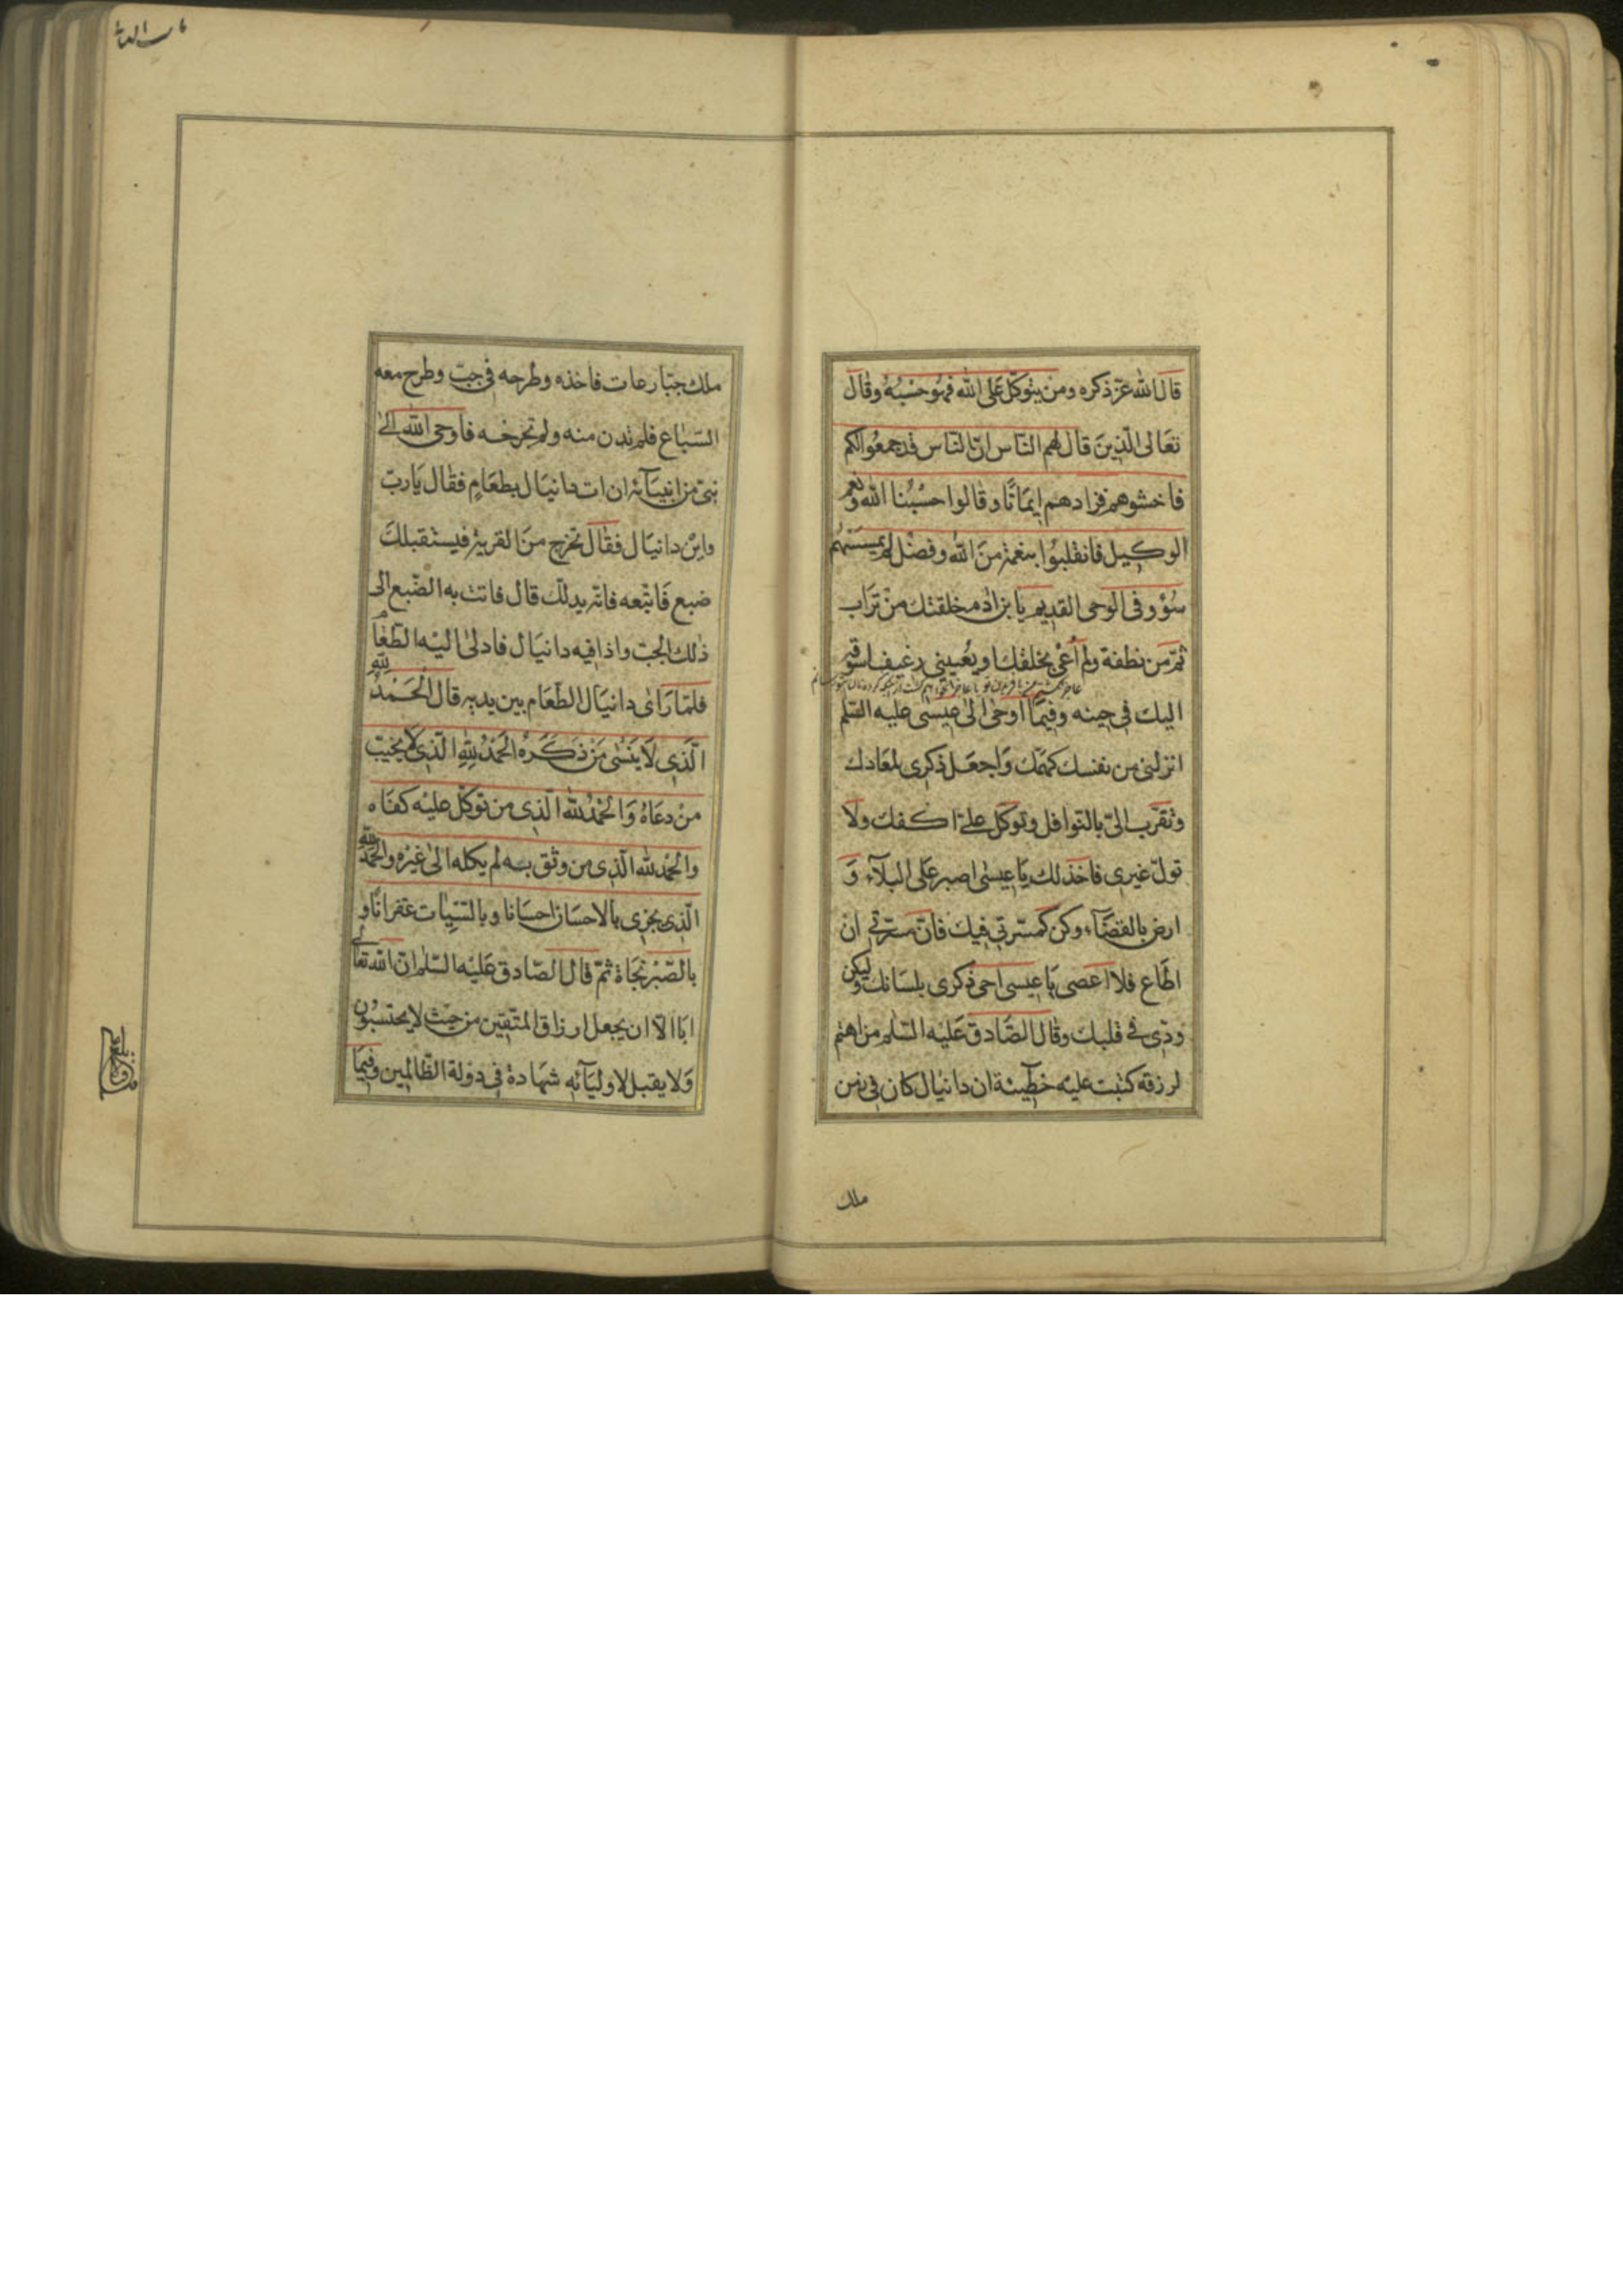 قال الله عزّ ذكره ومن يتوكّل على الله فهو حسبه وقال
تعالى الّذين قال لهم النّاس انّ النّاس قد جمعوا لكم
فاخشوهم فزادهم ايمانًا وقالوا حسبنا الله ونعم
الوكيل فانقلبوا بنعمة من الله وفضل لم يمسسهم
سوٓء وفى الوحى القديم يا بن ادم خلقتك من تراب
ثمّ من نطفة ولم أعى بخلقك او يعيينى رغيف اسوقه
اليك فى حينه وفيمٓا اوحى الى عيسى عليه السّلم
انزلنى من نفسك كهمّك واجعل ذكرى لمعادك
وتقرّب الىّ بالنّوافل وتوكّل علىّ اكفك ولا
تولّ غيرى فاخذلك يا عيسى اصبر على البلآء و
ارض بالقضآء وكن كمسرتى فيك فانّ مسرّتى ان
اطاع فلا اعصى يا عيسى احى ذكرى بلسانك وليكن
ودّى فى قلبك وقال الصّادق عليه السّلم من اهتم
لرزقه كتبت عليه خطيئة ان دانيال كان فى زمن
ملك
باب العا
ملك جبّار عات فاخذه وطرحه فى جبّ وطرح معه
السّباع فلم تدن منه ولم تجرحه فاوحى الله الى
نبىّ من انبيآئه ان ات دانيال بطعام فقال يا ربّ
واين دانيال فقال تخرج من القرية فيستقبلك
ضبع فاتبعه فانّه يدلّك قال فاتت به الضّبع الى
ذلك الجبّ واذا فيه دانيال فادلى اليه الطّعام
فلمّا راى دانيال الطّعام بين يديه قال الحمد لله
الّذى لا ينسى من ذكره الحمد لله الّذى لا يخيّب
من دعاه والحمد لله الّذى من توكّل عليه كفاه
والحمد لله الّذى من وثق به لم يكله الى غيره والحمد لله
الّذى يجزى بالاحسان احسانا وبالسّيئات غفرانًا و
بالصّبر نجاة ثمّ قال الصّادق عليه السّلم انّ الله تعالى
ابا الّا ان يجعل ارزاق المتّقين من حيث لا يحتسبون
ولا يقبل لاوليآئه شهادة فى دولة الظّالمين وفيما